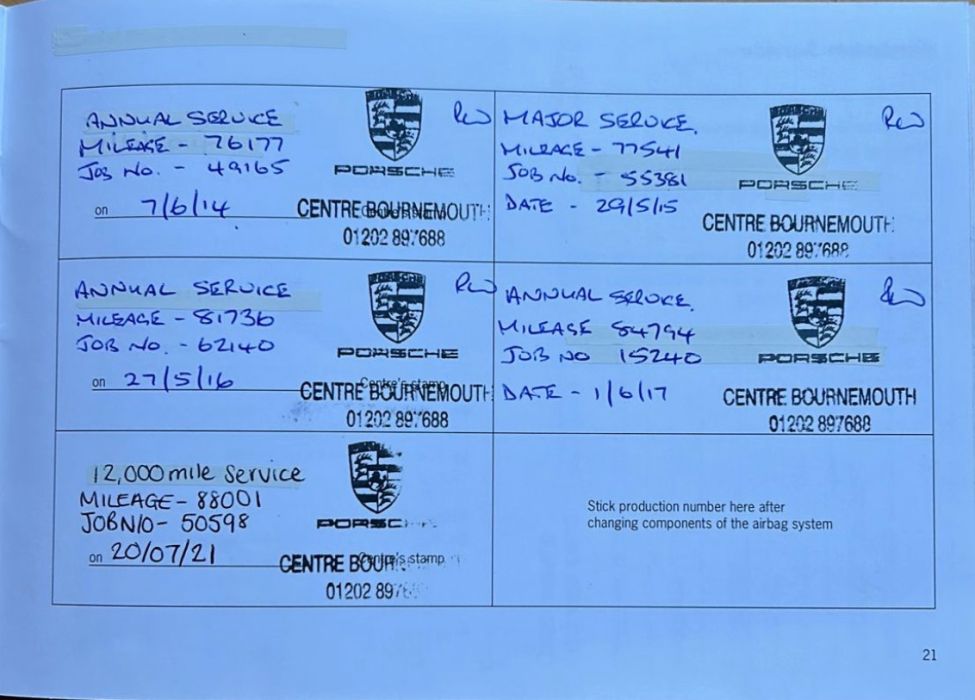 ANNUAL SERVICE
MILEAGE - 76177
JOB NO. - 49165
on 7/6/14
PORSCHE
CENTRE BOURNEMOUTH
01202 897688
MAJOR SERVICE.
MILEAGE - 77541
JOB No. - 55381
DATE - 29/5/15
PORSCHE
CENTRE BOURNEMOUTH
01202 897688
ANNUAL SERVICE
MILEAGE - 81736
JOB No. - 62140
on 27/5/16
PORSCHE
Centre's stamp
CENTRE BOURNEMOUTH
01202 897688
ANNUAL SERVICE.
MILEAGE 84794
JOB NO 15240
DATE - 1/6/17
PORSCHE
CENTRE BOURNEMOUTH
01202 897688
12,000 mile Service
MILEAGE - 88001
JOBN/O - 50598
on 20/07/21
PORSC
Centre's stamp
CENTRE BOUR
01202 897
Stick production number here after
changing components of the airbag system
21